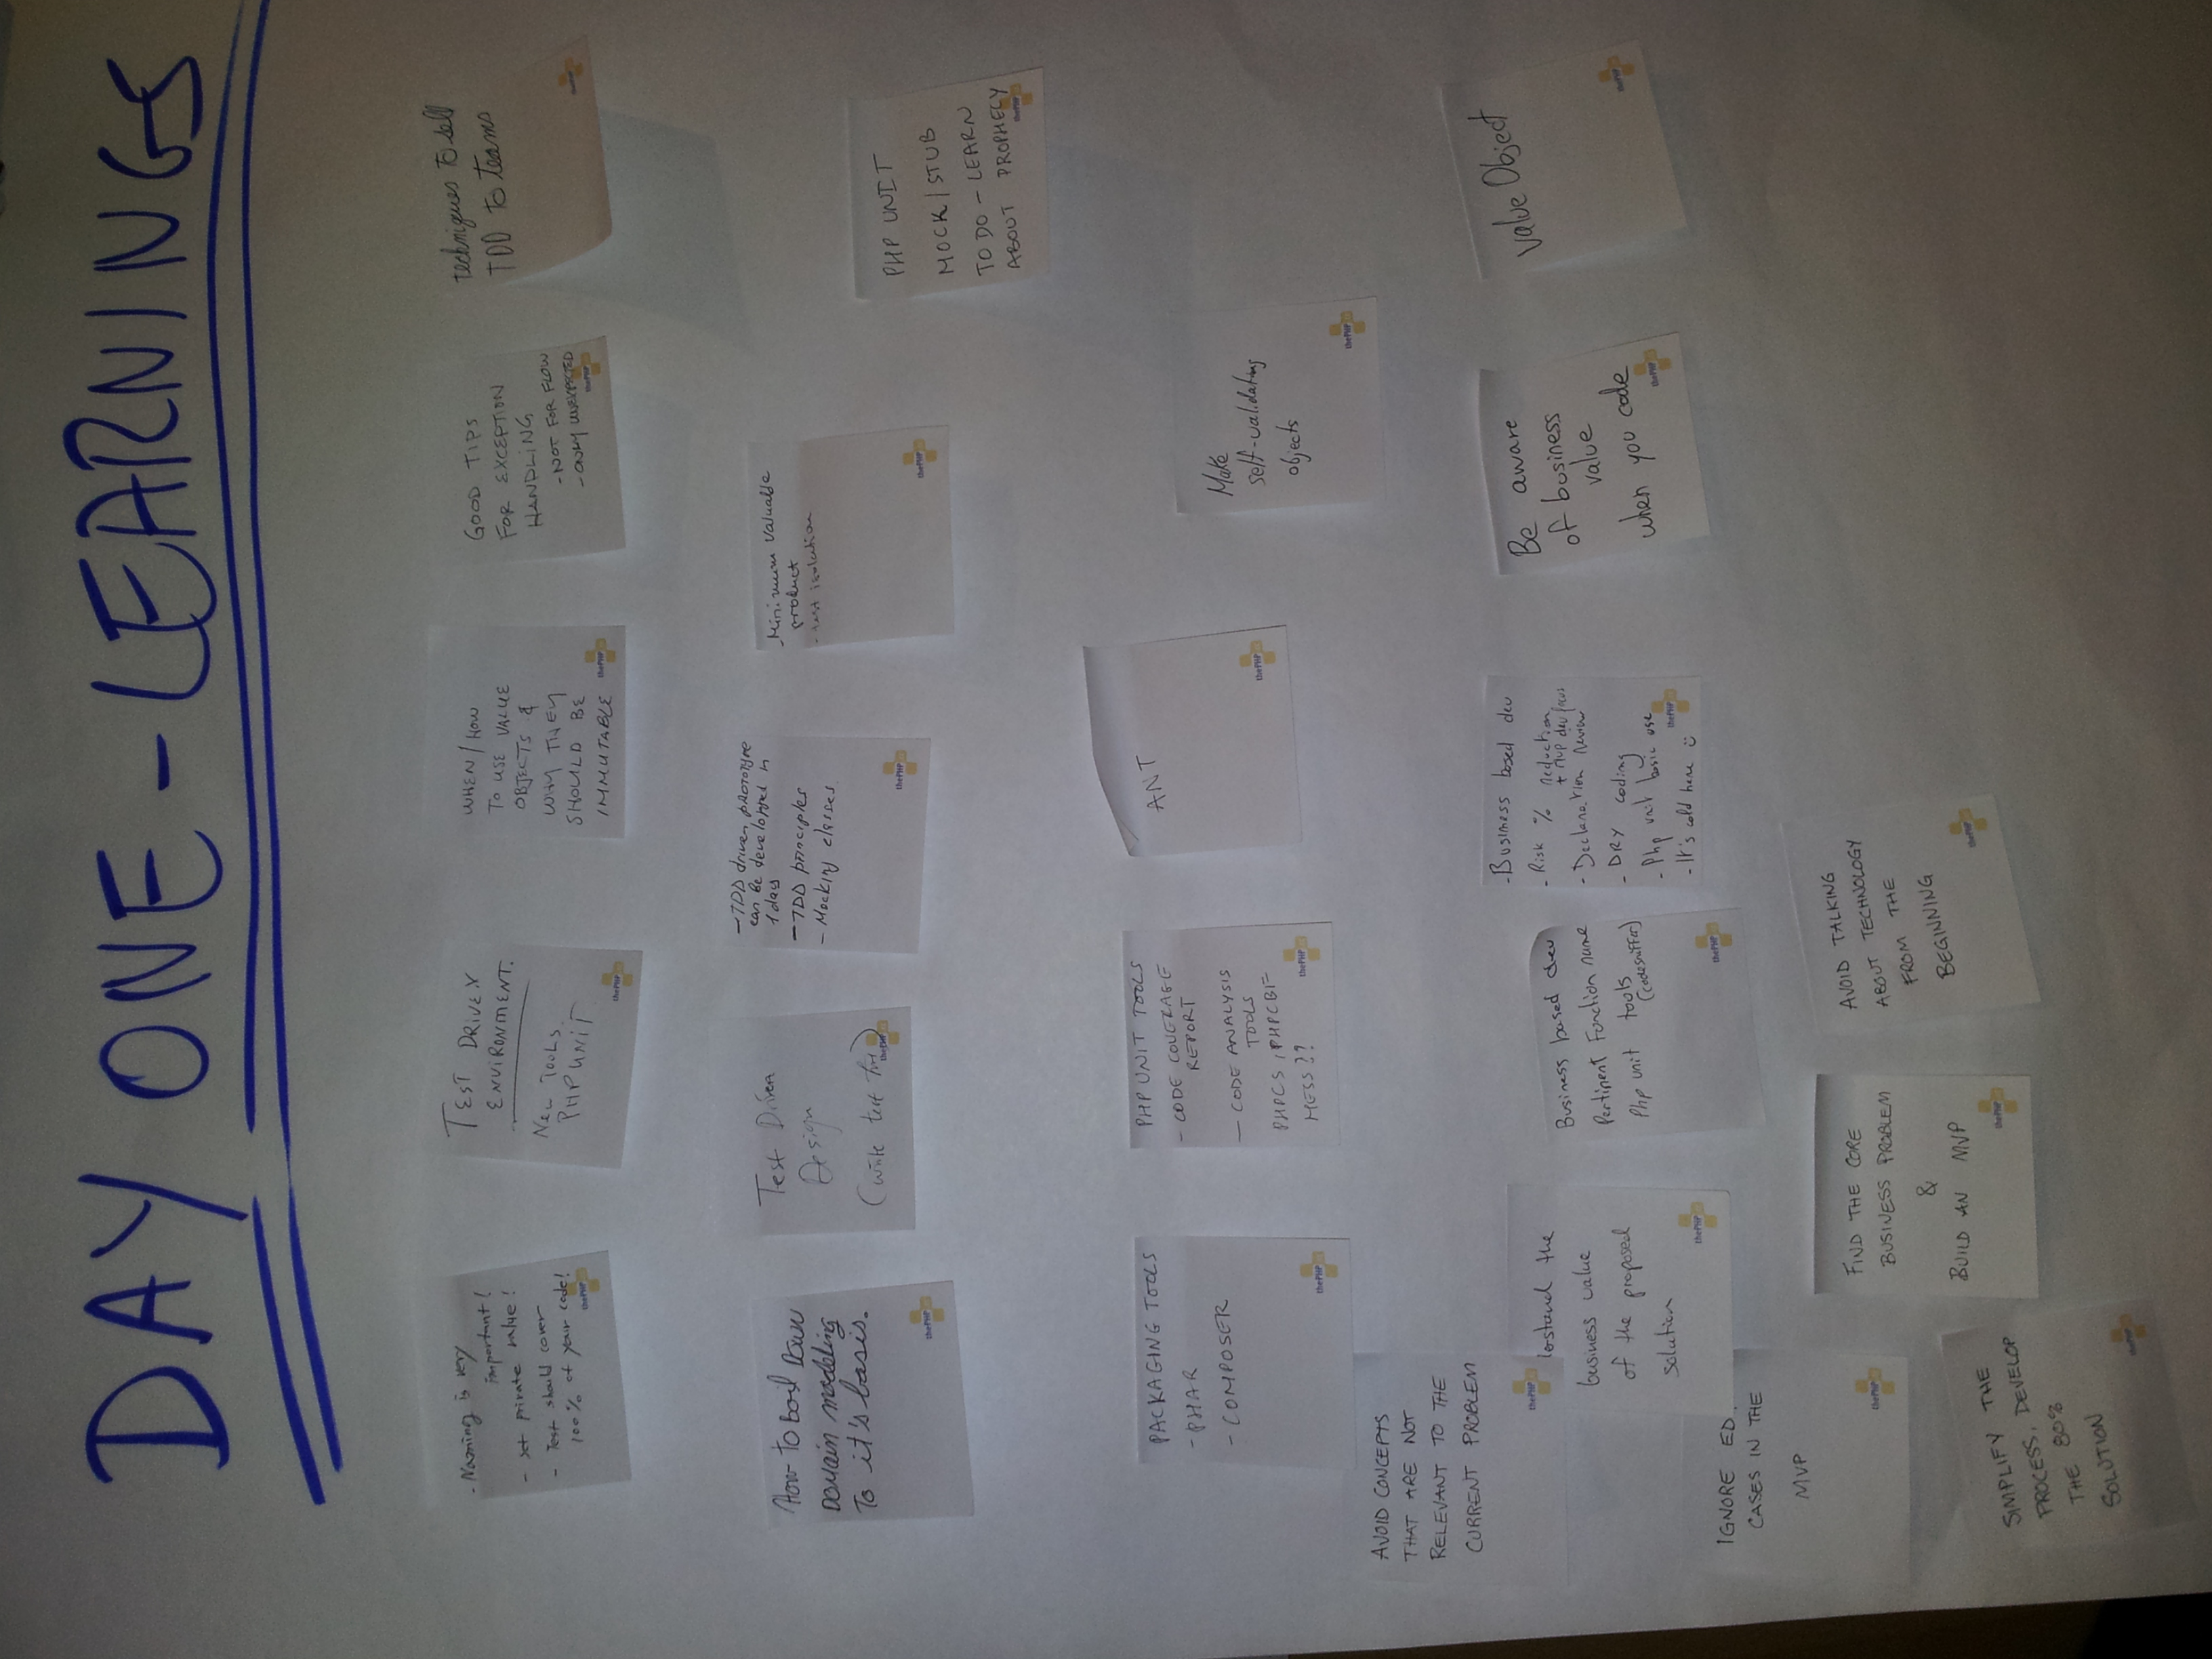 DAY ONE - LEARNINGS
- Naming is very
important!
- set private value!
- Test should cover
100% of your code!
thePHP
TEST DRIVEN
ENVIRONMENT.
NEW TOOLS.
PHPUNIT
thePHP
WHEN/HOW
TO USE VALUE
OBJECTS &
WHY THEY
SHOULD BE
IMMUTABLE
thePHP
GOOD TIPS
FOR EXCEPTION
HANDLING
- NOT FOR FLOW
- ONLY UNEXPECTED
thePHP
techniques to sell
TDD to teams
thePHP
How to boil down
Domain modeling
To it's basis.
thePHP
Test Driven
Design
(write test
thePHP
- TDD driven prototype
can be developped in
1 day
- TDD principles
- Mocking classes
thePHP
- Minimum Valuable
product
- test isolation
thePHP
PHP UNIT
MOCK/STUB
TO DO - LEARN
ABOUT PROPHECY
thePHP
PACKAGING TOOLS
- PHAR
- COMPOSER
thePHP
PHP UNIT TOOLS
- CODE COVERAGE
REPORT
- CODE ANALYSIS
TOOLS
PHPCS, PHPCBF
MESS??
thePHP
ANT
thePHP
Make
self-validating
objects
thePHP
AVOID CONCEPTS
THAT ARE NOT
RELEVANT TO THE
CURRENT PROBLEM
thePHP
the
business value
of the proposed
solution
thePHP
Business based dev
Pertinent Function name
Php unit tools
(codesniffer)
thePHP
- Business based dev
- Risk % reduction
+ MVP dev focus
- Declaration review
- DRY coding
- Php unit basic use
- It's cold here ü
thePHP
Be aware
of business
value
when you code
thePHP
Value Object
thePHP
IGNORE ED
CASES IN THE
MVP
thePHP
FIND THE CORE
BUSINESS PROBLEM
&
BUILD AN MVP
thePHP
AVOID TALKING
ABOUT TECHNOLOGY
FROM THE
BEGINNING
thePHP
SIMPLIFY THE
PROCESS, DEVELOP
THE 80%
SOLUTION
thePHP